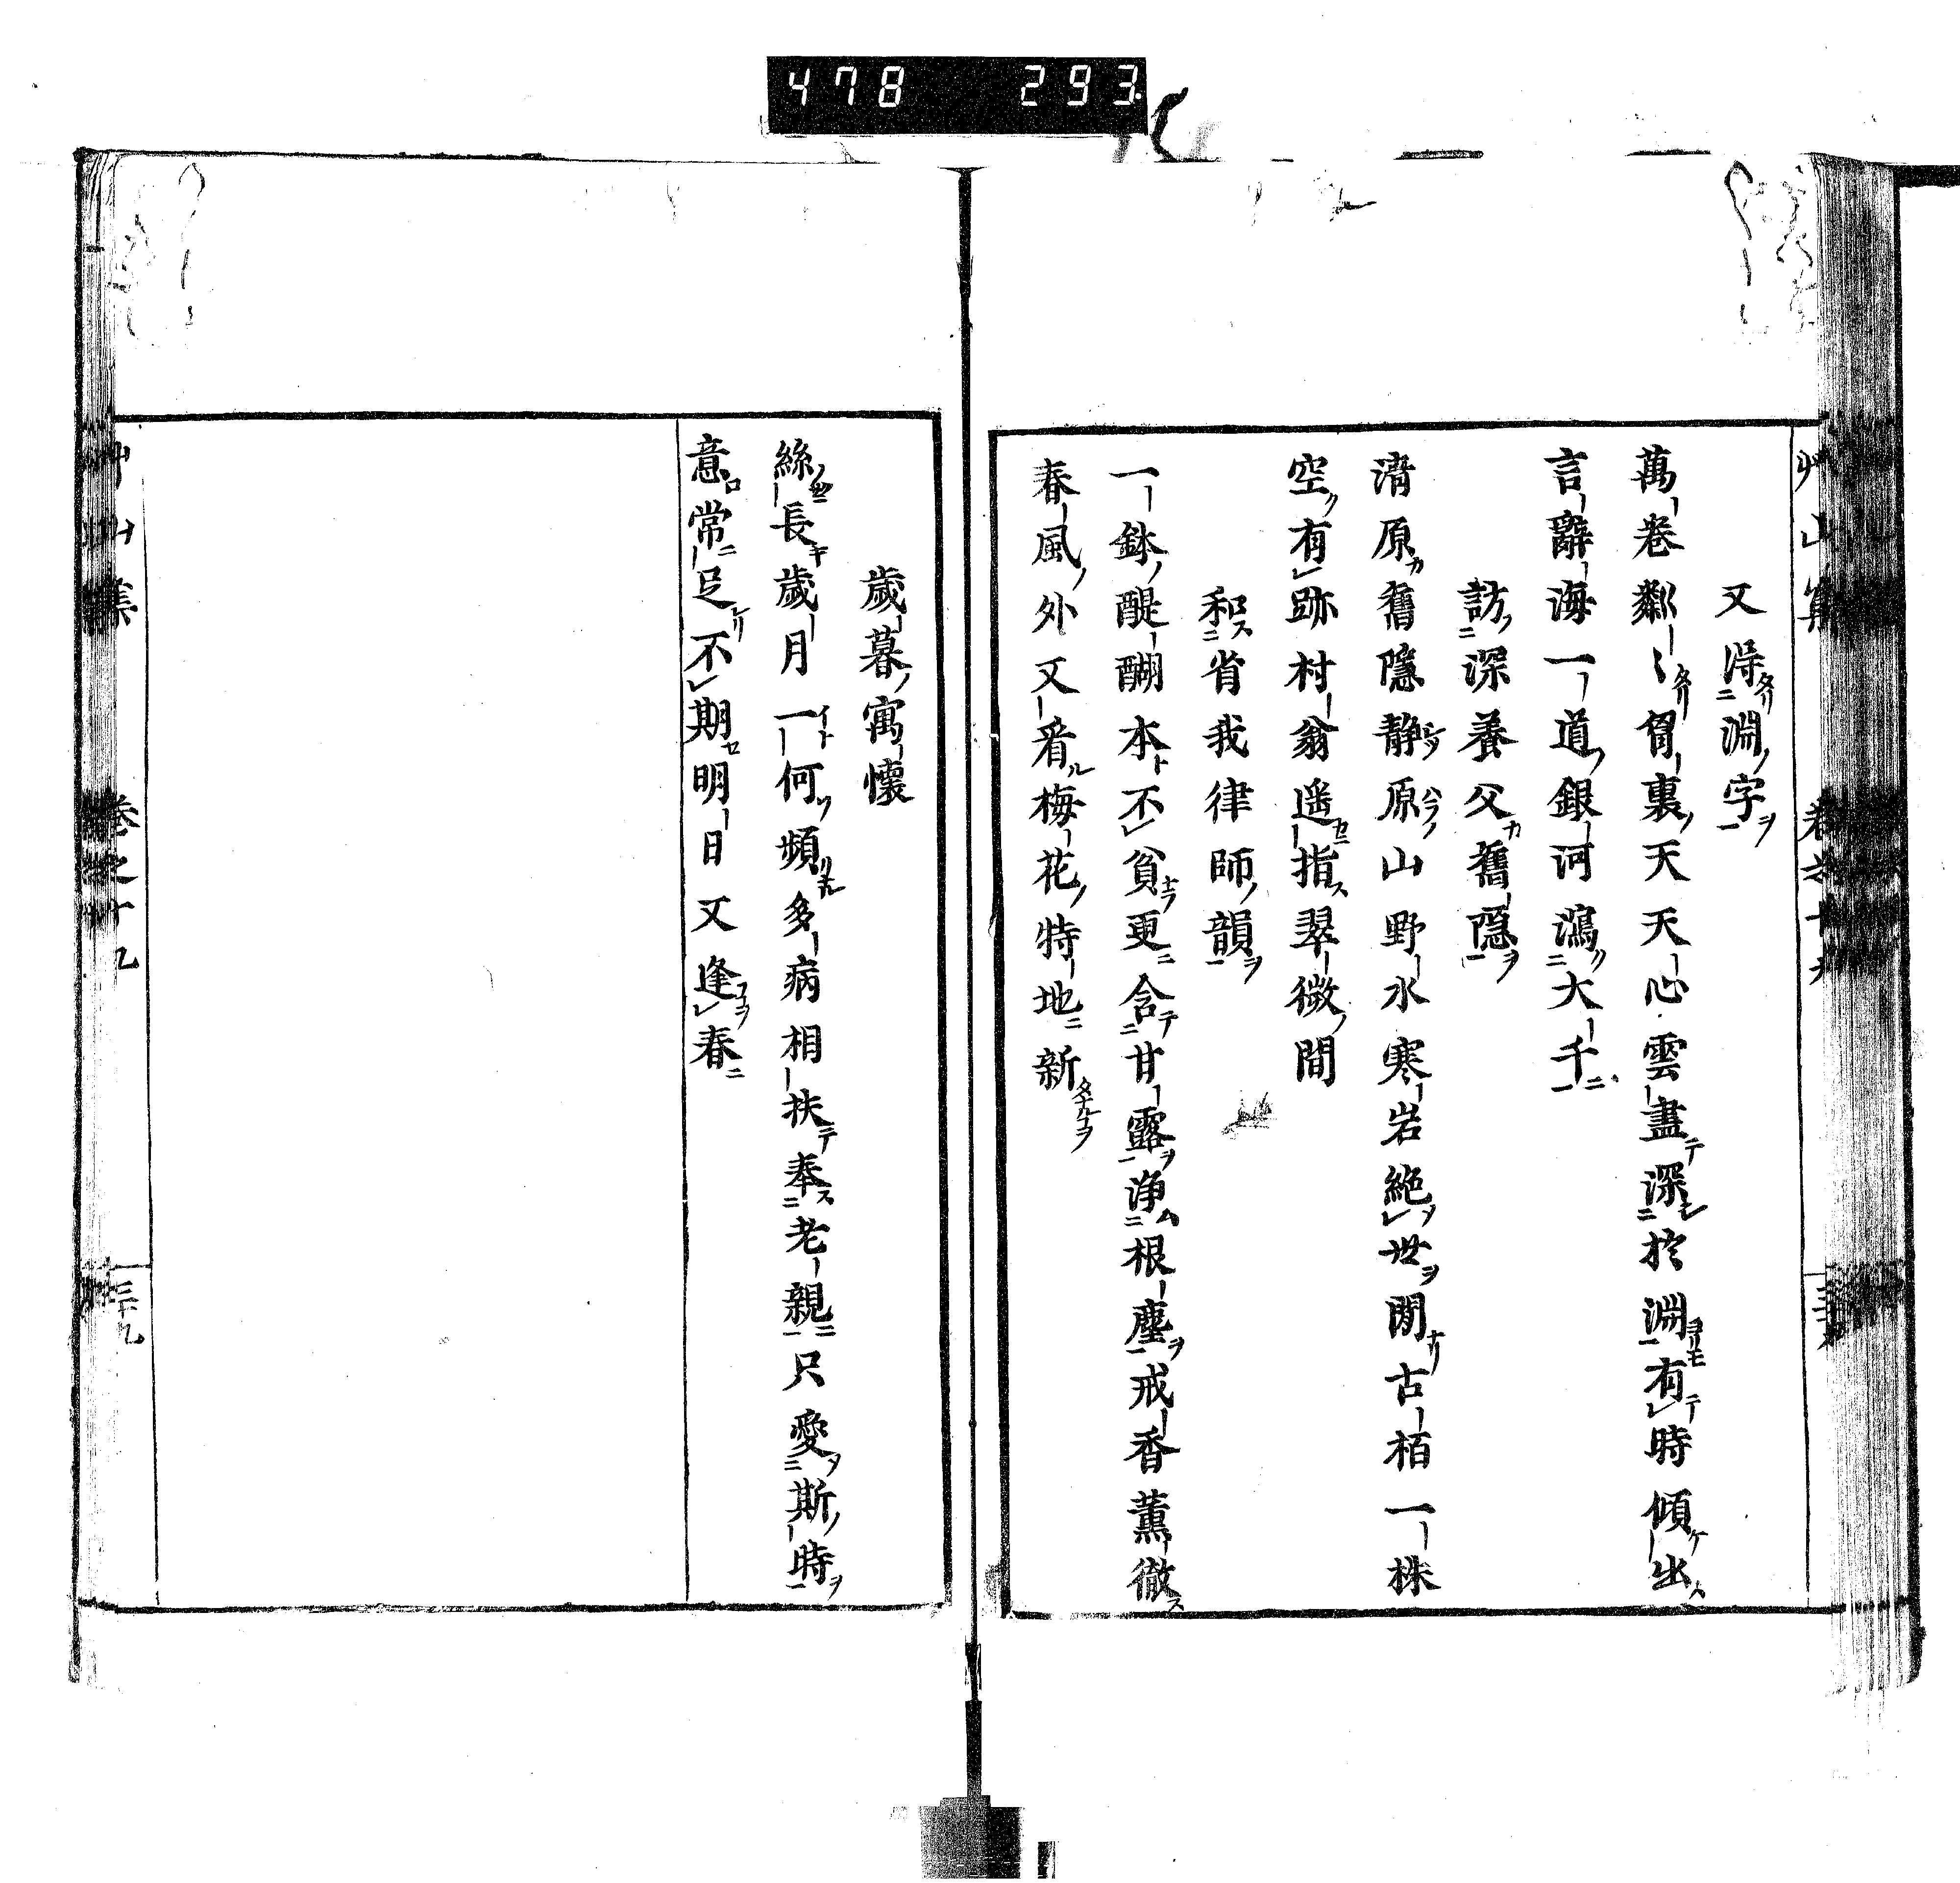 478 293
又得淵字
萬卷粼〻胷裏天天心雲盡深於淵有時傾出
言辭海一道銀河瀉大千
訪深養父舊隱
清原舊隱靜原山野水寒岩絶世閒古栢一株
空有跡村翁遥指翠微間
和省我律師韻
一鉢醍醐本不貧更含甘露淨根塵戒香薫徹
春風外又看梅花特地新
歲暮寓懷
絲長歲月一何頻多病相扶奉老親只愛斯時
意常足不期明日又逢春
艸山集 卷之十九